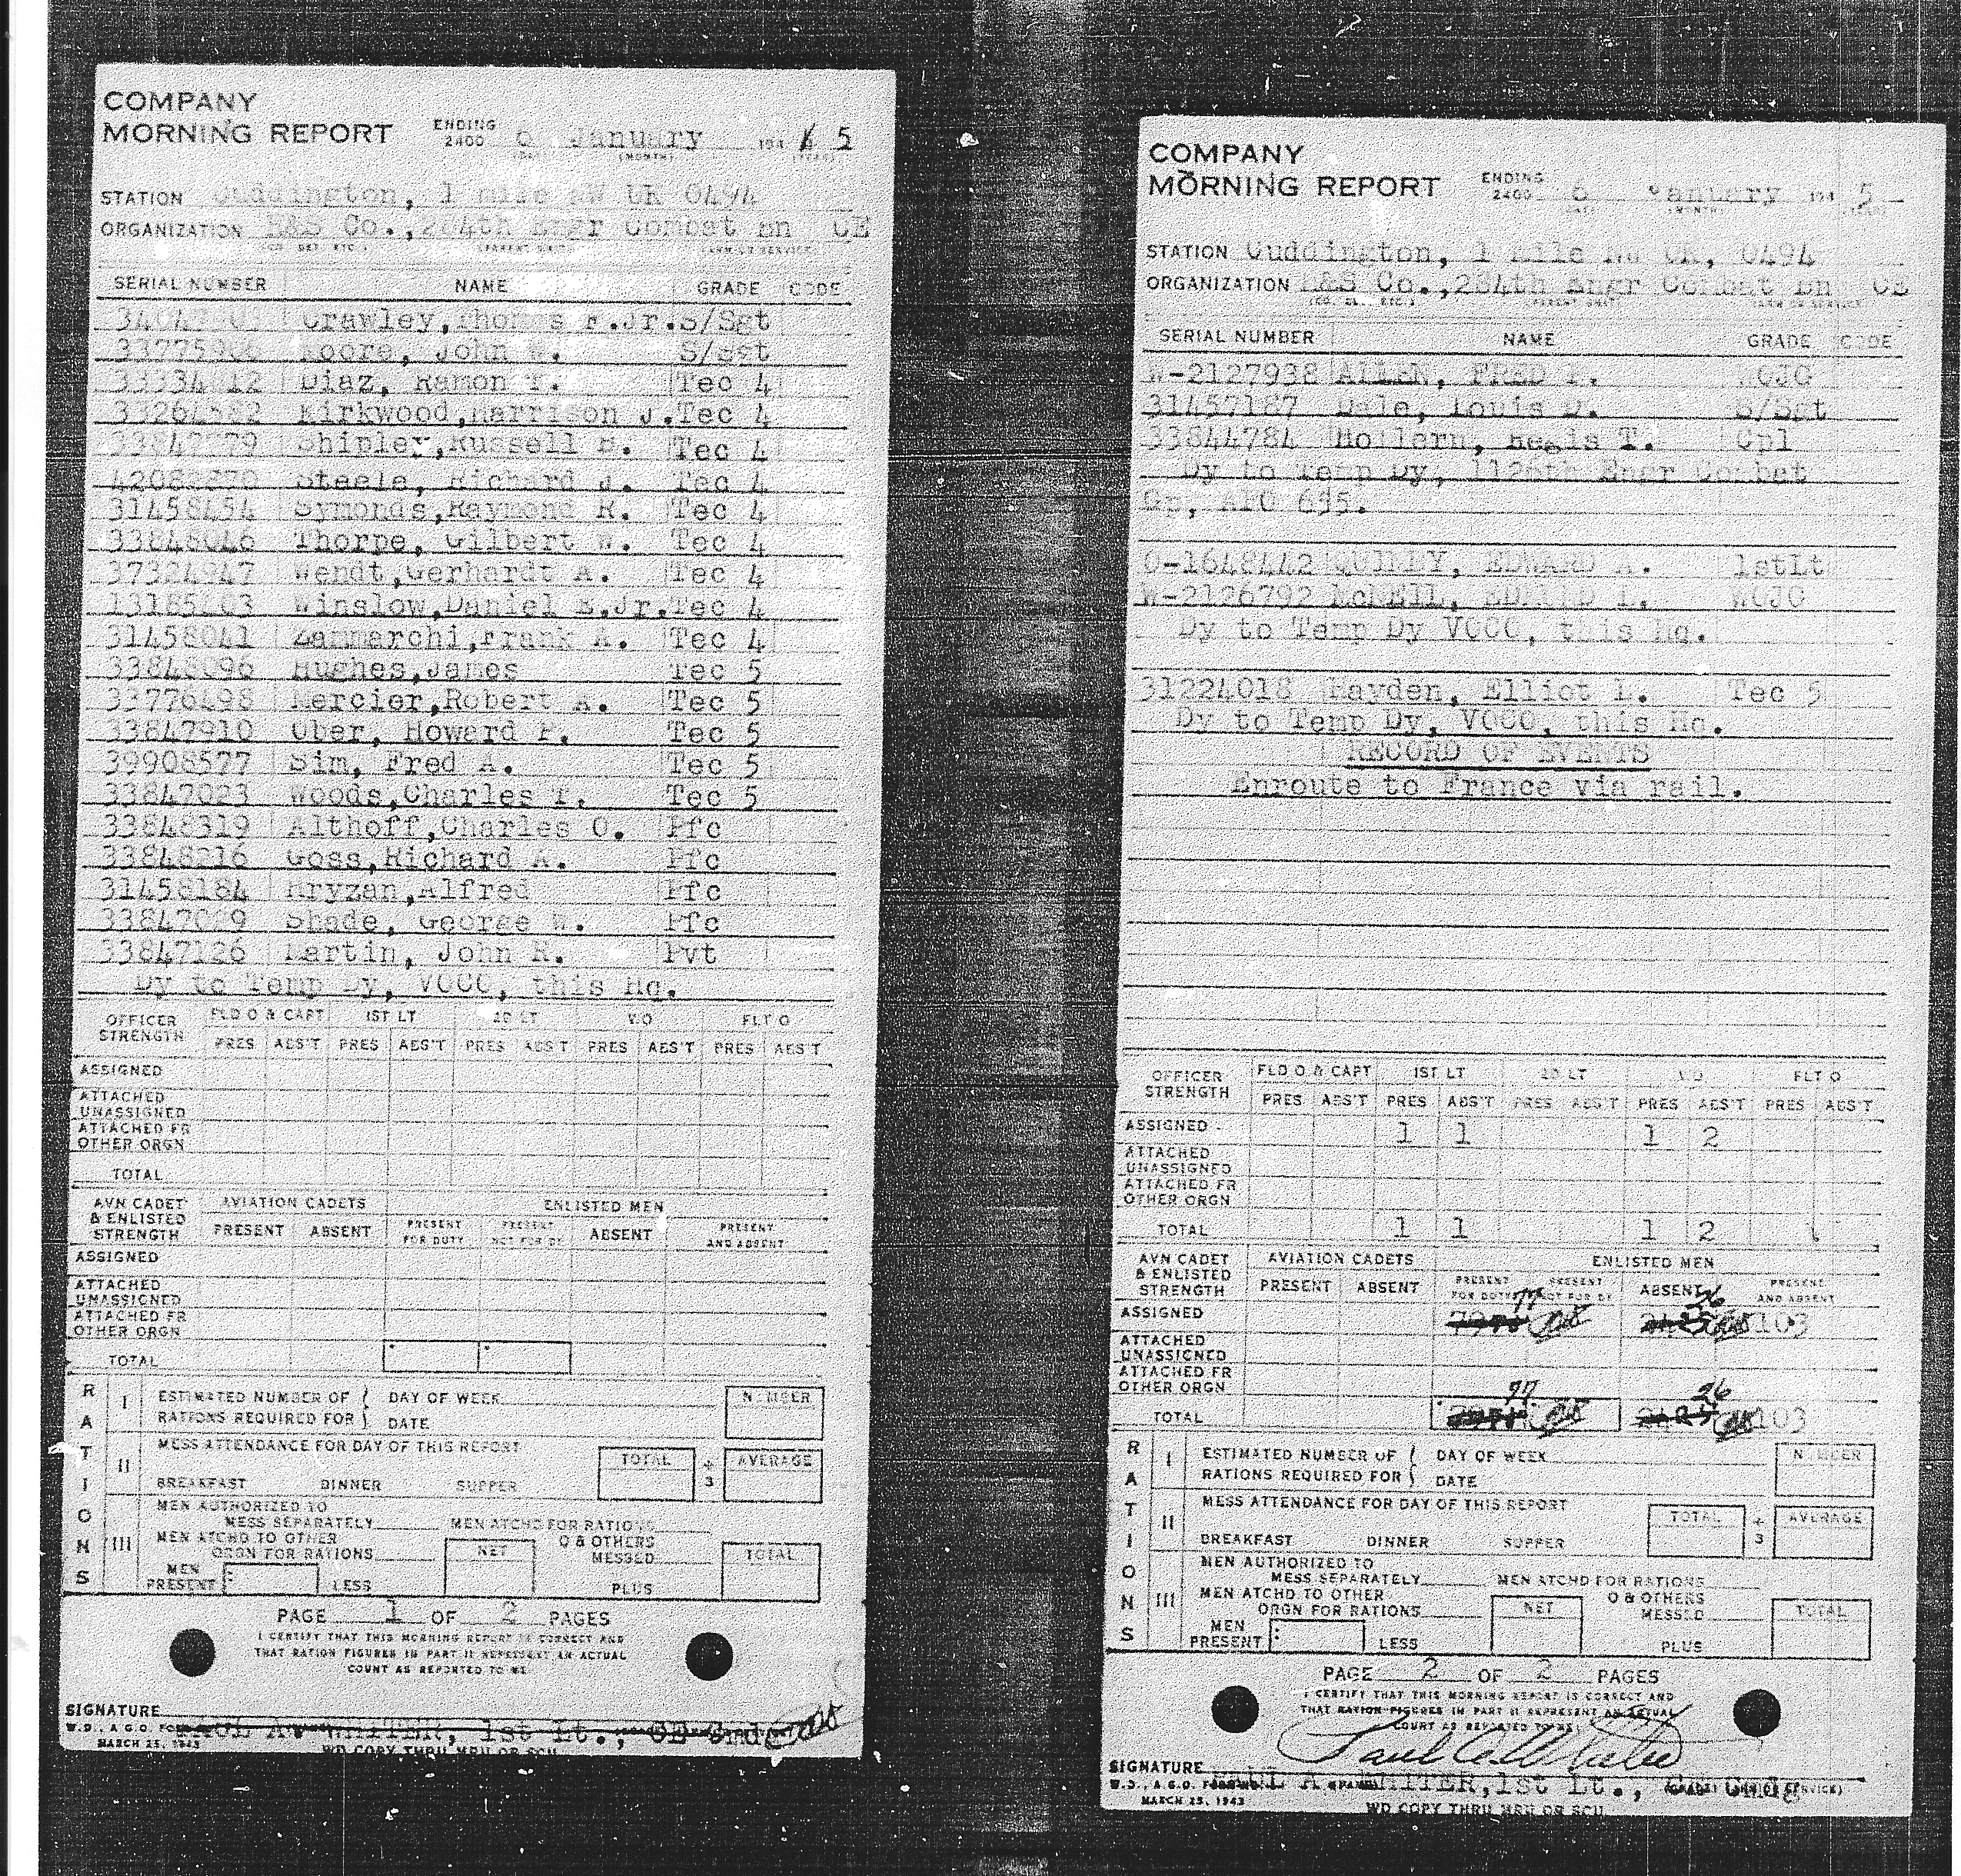 COMPANY
MORNING REPORT ENDING 2400 6 January 194 5
STATION Cuddington, 1 mile NW UK 0494
ORGANIZATION H&S Co.,284th Engr Combat Bn CE
SERIAL NUMBER NAME GRADE CODE
Crawley,Thomas F.Jr. S/Sgt
Moore, John W. S/Sgt
Diaz, Ramon T. Tec 4
Kirkwood,Harrison J. Tec 4
Shipley,Russell B. Tec 4
Steele, Richard J. Tec 4
31458454 Symonds,Raymond R. Tec 4
33848046 Thorpe, Gilbert W. Tec 4
37324947 Wendt,Gerhardt A. Tec 4
Winslow,Daniel E.Jr. Tec 4
31458041 Zammarchi,Frank A. Tec 4
33848096 Hughes,James Tec 5
33776498 Mercier,Robert A. Tec 5
33847910 Ober, Howard F. Tec 5
39908577 Sim, Fred A. Tec 5
33847023 Woods,Charles T. Tec 5
33848319 Althoff,Charles O. Pfc
33848216 Goss,Richard A. Pfc
31458184 Hryzan,Alfred Pfc
Shade, George W. Pfc
33847126 Martin, John R. Pvt
Dy to Temp Dy, VOCO, this Hq.
OFFICER STRENGTH FLD O & CAPT 1ST LT 2D LT W.O FLT O
PRES ABS'T PRES ABS'T PRES ABS'T PRES ABS'T PRES ABS'T
ASSIGNED
ATTACHED UNASSIGNED
ATTACHED FR OTHER ORGN
TOTAL
AVN CADET & ENLISTED STRENGTH AVIATION CADETS ENLISTED MEN
PRESENT ABSENT PRESENT FOR DUTY PRESENT NOT FOR DY ABSENT PRESENT AND ABSENT
ASSIGNED
ATTACHED UNASSIGNED
ATTACHED FR OTHER ORGN
TOTAL
RATIONS
I ESTIMATED NUMBER OF RATIONS REQUIRED FOR DAY OF WEEK DATE NUMBER
II MESS ATTENDANCE FOR DAY OF THIS REPORT TOTAL ÷ 3 AVERAGE
BREAKFAST DINNER SUPPER
III MEN AUTHORIZED TO MESS SEPARATELY MEN ATCHD FOR RATIONS
MEN ATCHD TO OTHER ORGN FOR RATIONS NET O & OTHERS MESSED TOTAL
MEN PRESENT LESS PLUS
PAGE 1 OF 2 PAGES
I CERTIFY THAT THIS MORNING REPORT IS CORRECT AND
THAT RATION FIGURES IN PART II REPRESENT AN ACTUAL
COUNT AS REPORTED TO ME
SIGNATURE PAUL A. WHITER, 1st Lt., CE Cmdg
W.D., A.G.O. FORM
MARCH 25, 1943
WD COPY THRU MRU OR SCU
COMPANY
MORNING REPORT ENDING 2400 6 January 194 5
STATION Cuddington, 1 Mile NW UK, 0494
ORGANIZATION H&S Co.,284th Engr Combat Bn CE
SERIAL NUMBER NAME GRADE CODE
W-2127938 ALLEN, FRED P. WOJG
31457187 Dale, Louis D. S/Sgt
33844784 Hollern, Regis T. Cpl
Dy to Temp Dy, Engr Combat
Gp, APO 655.
O-1648442 EDWARD A. 1stLt
W-2126792 McNEIL, EDMUND L. WOJG
Dy to Temp Dy VOCO, this Hq.
31224018 Hayden, Elliot L. Tec 5
Dy to Temp Dy, VOCO, this Hq.
RECORD OF EVENTS
Enroute to France via rail.
OFFICER STRENGTH FLD O & CAPT 1ST LT 2D LT W.O FLT O
PRES ABS'T PRES ABS'T PRES ABS'T PRES ABS'T PRES ABS'T
ASSIGNED 1 1 1 2
ATTACHED UNASSIGNED
ATTACHED FR OTHER ORGN
TOTAL 1 1 1 2
AVN CADET & ENLISTED STRENGTH AVIATION CADETS ENLISTED MEN
PRESENT ABSENT PRESENT FOR DUTY PRESENT NOT FOR DY ABSENT PRESENT AND ABSENT
ASSIGNED 77 26 103
ATTACHED UNASSIGNED
ATTACHED FR OTHER ORGN
TOTAL 77 26 103
RATIONS
I ESTIMATED NUMBER OF RATIONS REQUIRED FOR DAY OF WEEK DATE NUMBER
II MESS ATTENDANCE FOR DAY OF THIS REPORT TOTAL ÷ 3 AVERAGE
BREAKFAST DINNER SUPPER
III MEN AUTHORIZED TO MESS SEPARATELY MEN ATCHD FOR RATIONS
MEN ATCHD TO OTHER ORGN FOR RATIONS NET O & OTHERS MESSED TOTAL
MEN PRESENT LESS PLUS
PAGE 2 OF 2 PAGES
I CERTIFY THAT THIS MORNING REPORT IS CORRECT AND
THAT RATION FIGURES IN PART II REPRESENT AN ACTUAL
COUNT AS REPORTED TO ME
Paul A. Whiter
SIGNATURE PAUL A. WHITER,1st Lt., CE Cmdg
W.D., A.G.O. FORM
MARCH 25, 1943
WD COPY THRU MRU OR SCU